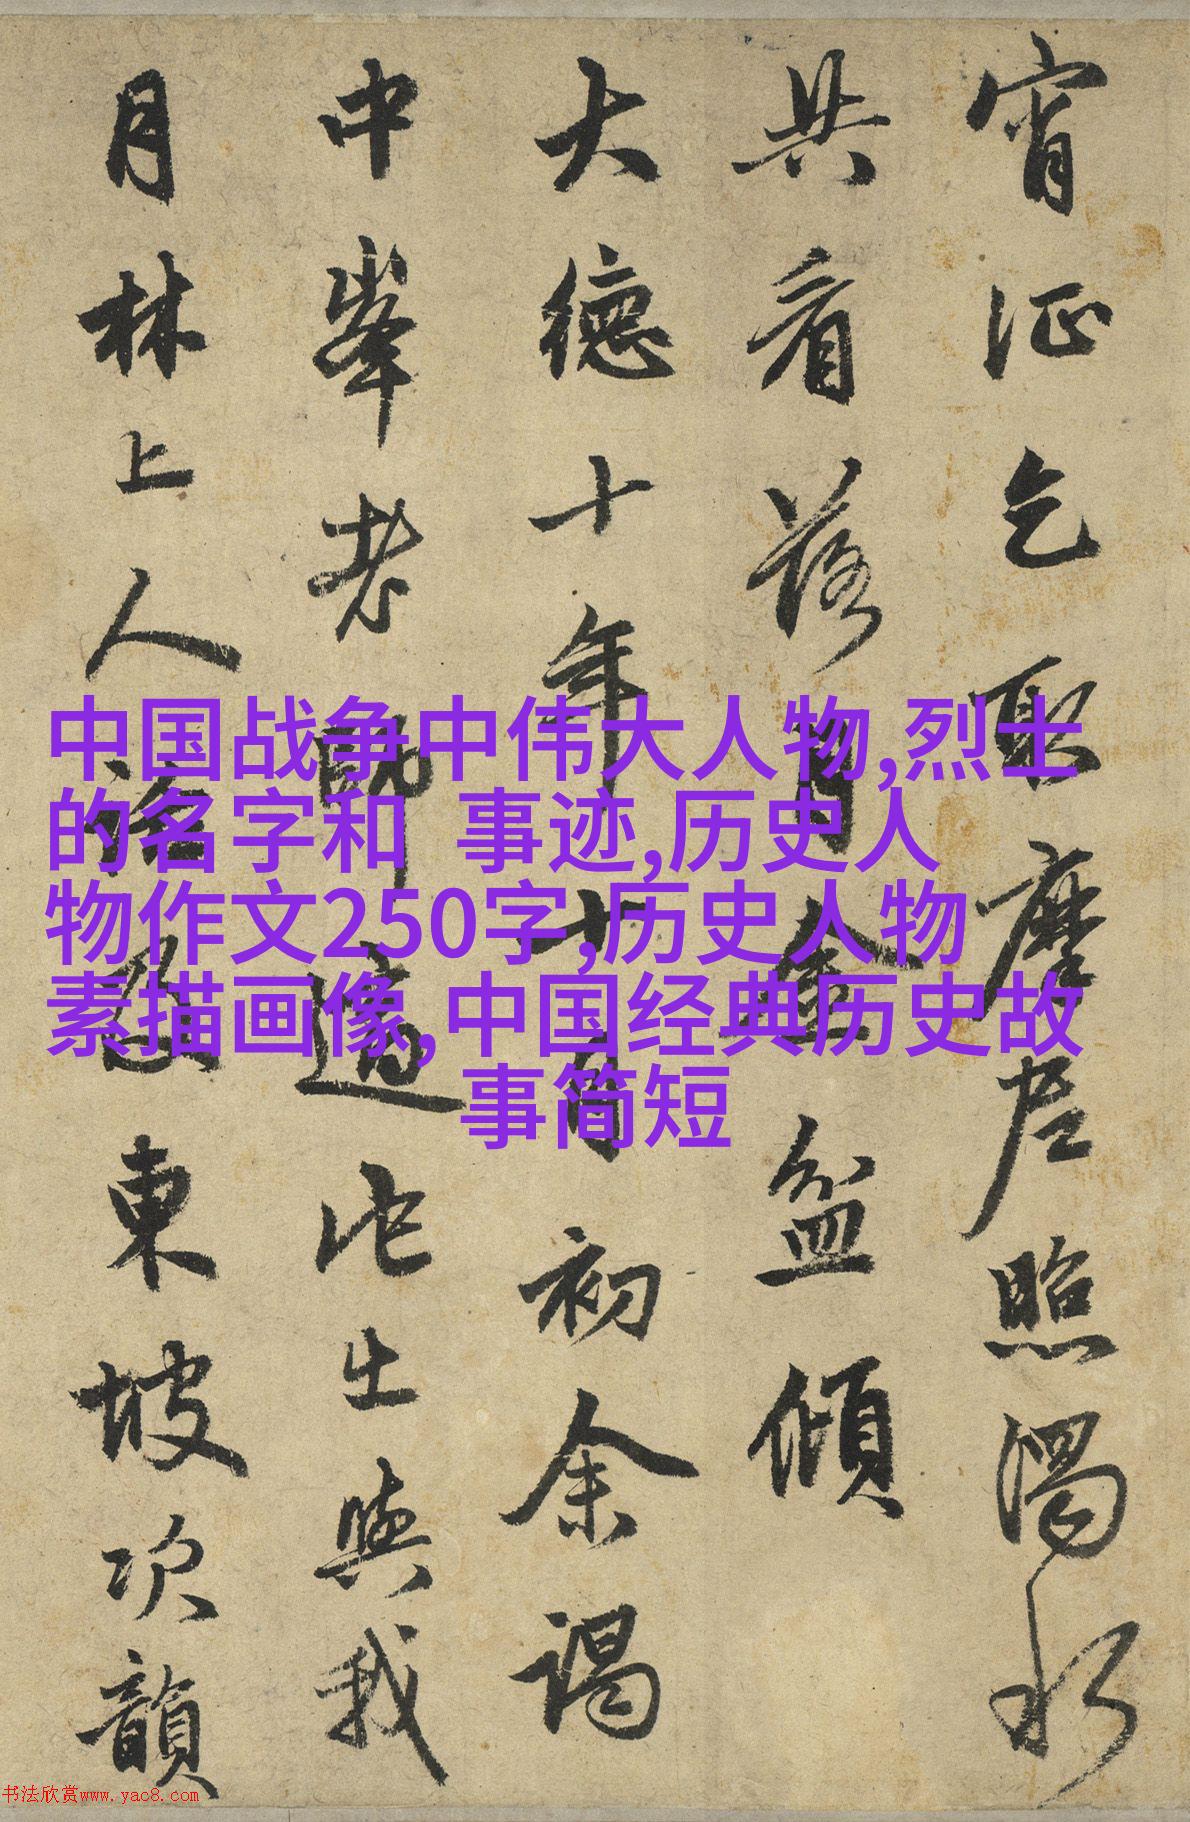 宵征乞取摩尼照濁水
共看落月金盆傾
大德十年十月初余謁
中峯老師適此出與我
月林上人及東坡次韻
中国战争中伟大人物,烈士
的名字和 事迹,历史人
物作文250字,历史人物
素描画像,中国经典历史故
事简短
书法欣赏www.yac8.com